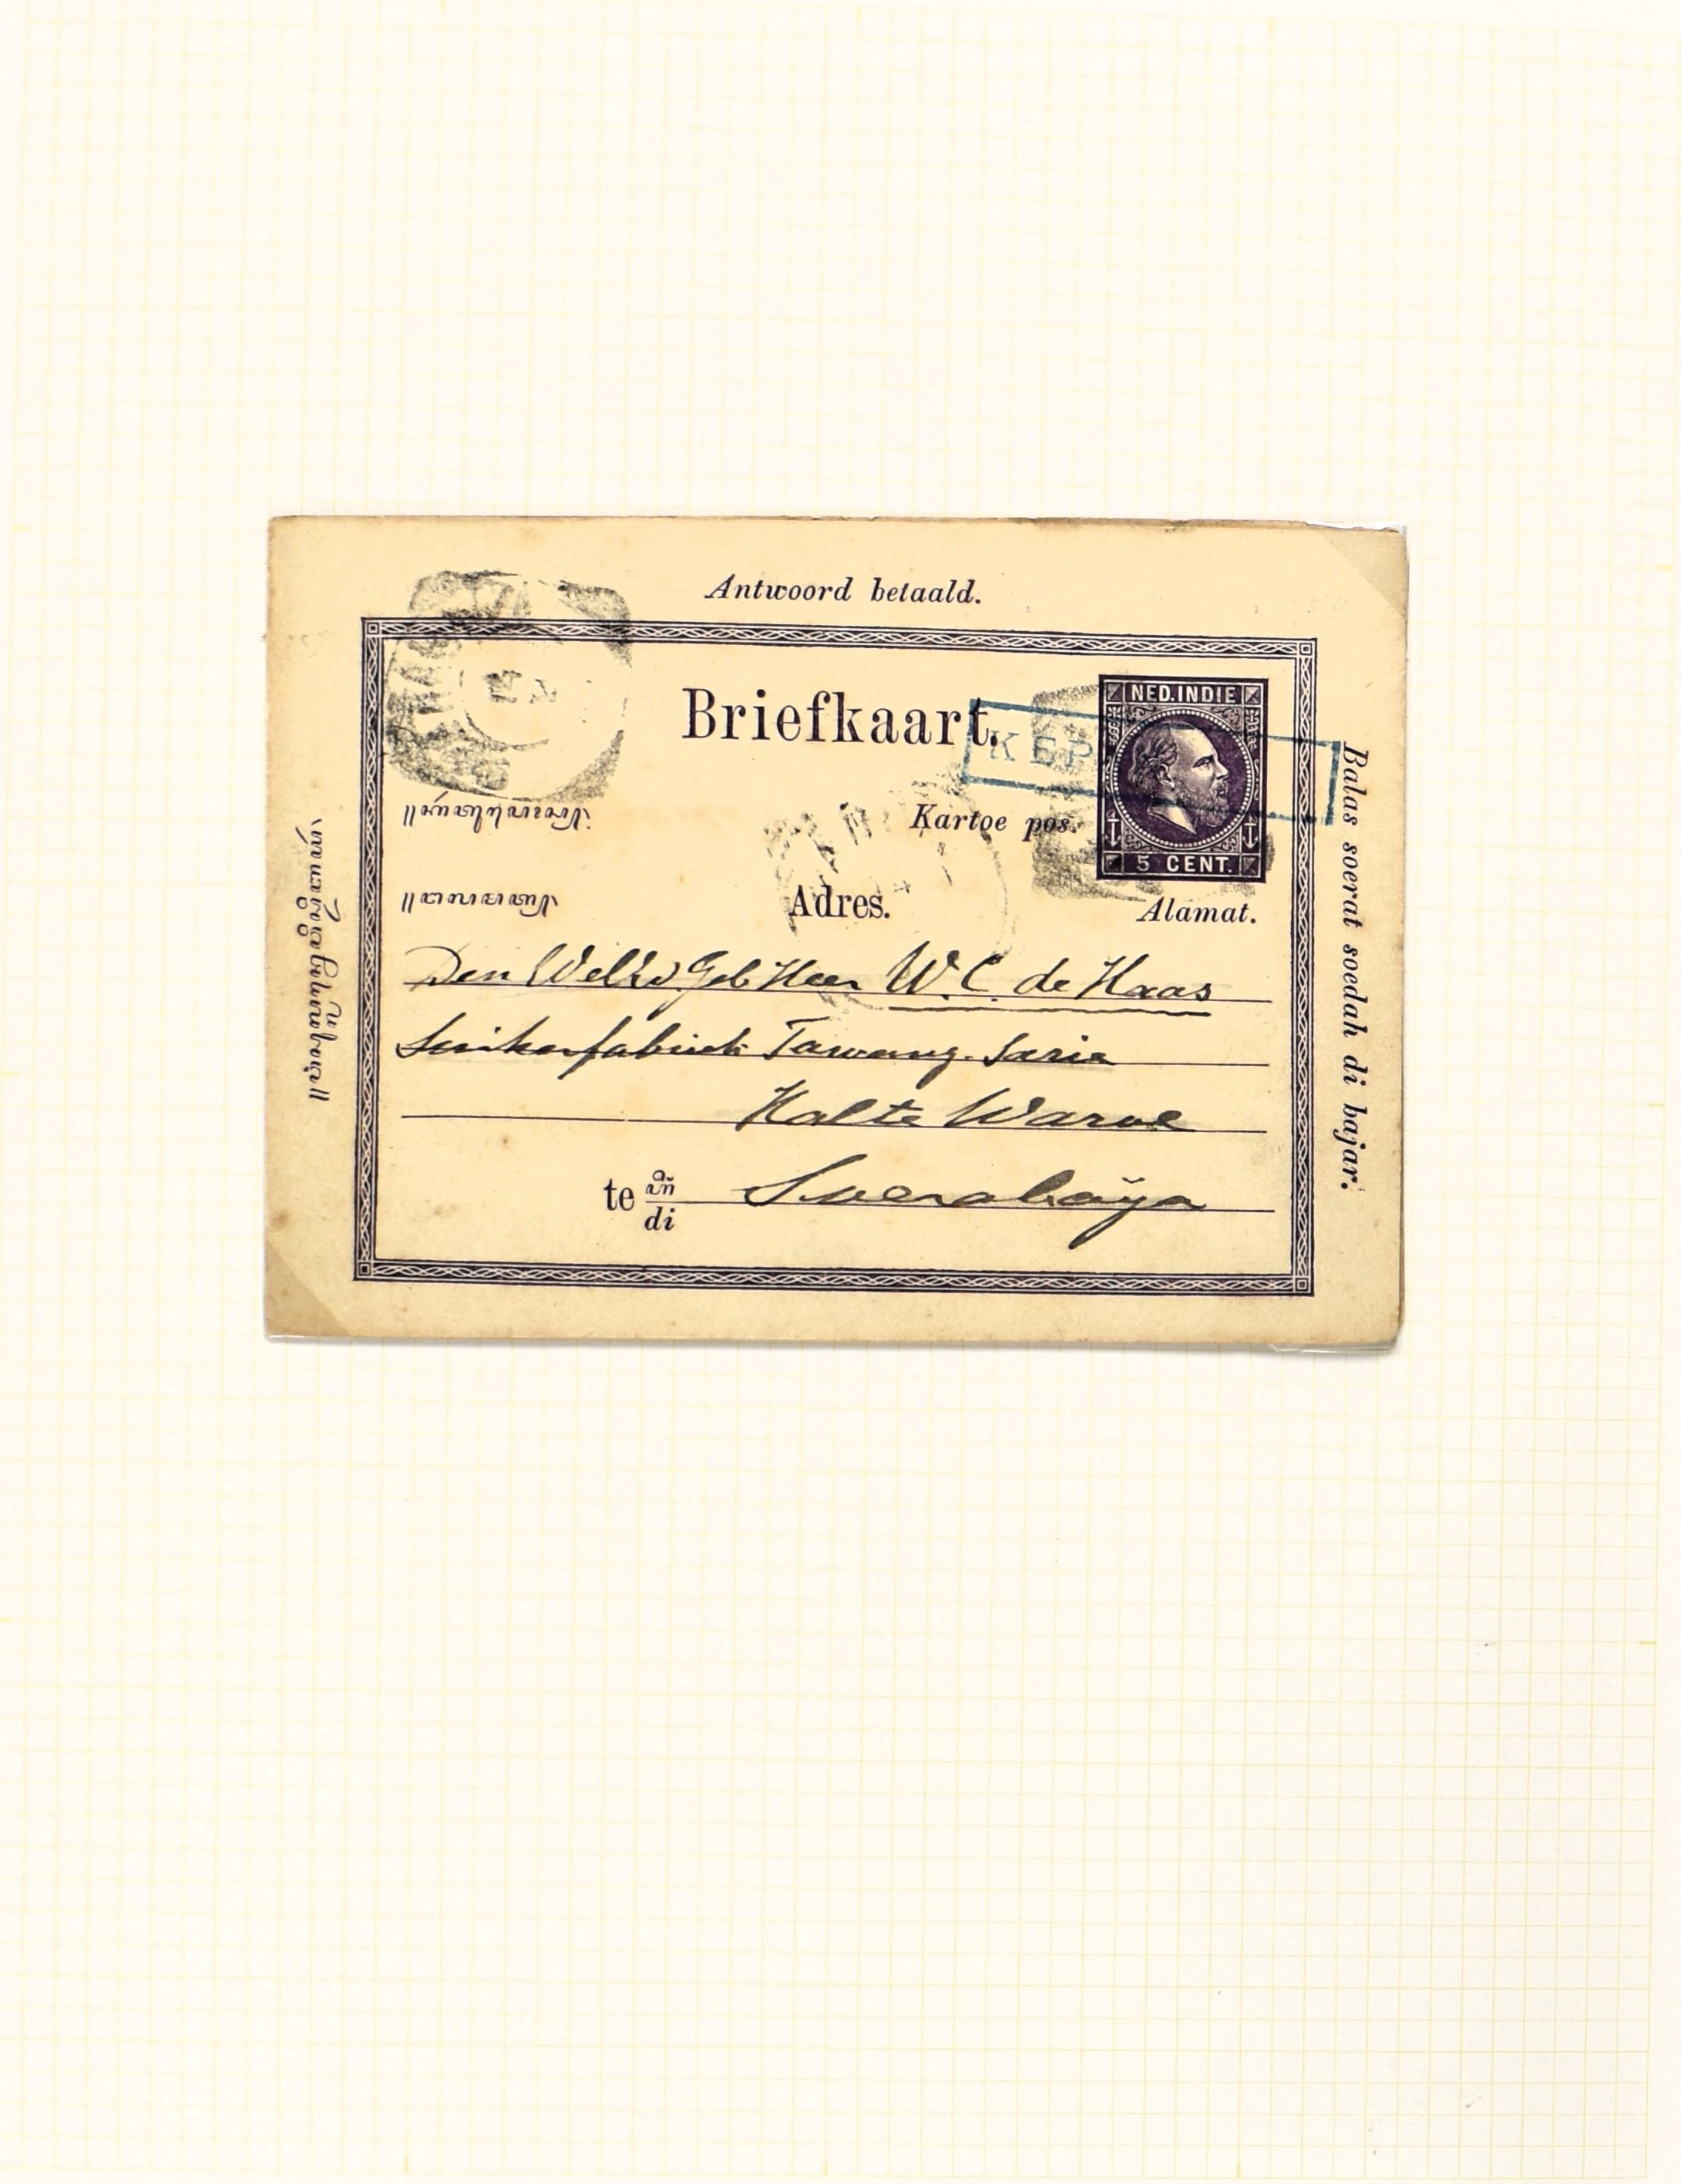 Antwoord betaald.
NED. INDIE
Briefkaart.
KEP
Kartoe pos.
5 CENT.
Adres.
Alamat.
Den WelEd Geb Heer W. C. de Haas
Suikerfabriek Tawang-Sarie
Halte Waroe
te
di
Soerabaija
Balas soerat soedah di bajar.